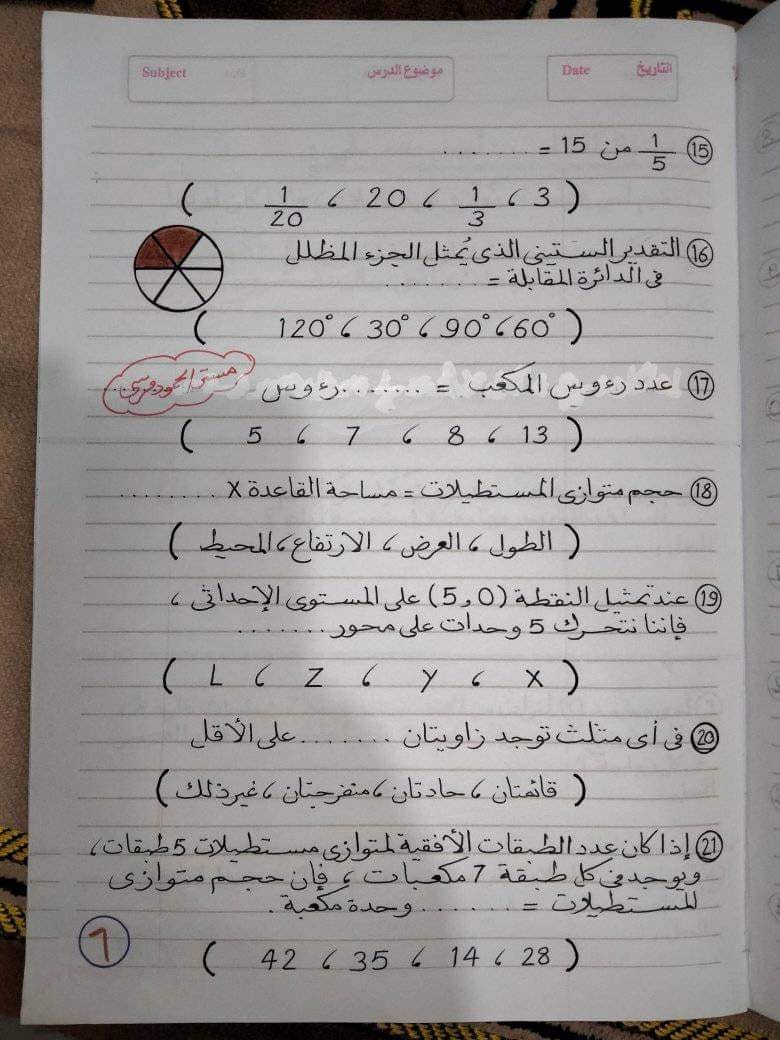 التاريخ Date موضوع الدرس Subject
⑮ 1/5 من 15 = ........
( 3 ، 1/3 ، 20 ، 1/20 )
⑯ التقدير الستيني الذى يُمثل الجزء المظلل
فى الدائرة المقابلة = ........
( 60° ، 90° ، 30° ، 120° )
⑰ عدد رءوس المكعب = ........ رءوس
( 13 ، 8 ، 7 ، 5 )
⑱ حجم متوازى المستطيلات = مساحة القاعدة X ........
( الطول ، العرض ، الارتفاع ، المحيط )
⑲ عند تمثيل النقطة (5 , 0) على المستوى الإحداثى ،
فإننا نتحرك 5 وحدات على محور ........
( X ، Y ، Z ، L )
⑳ فى أى مثلث توجد زاويتان ........ على الأقل
( قائمتان ، حادتان ، منفرجتان ، غير ذلك )
㉑ إذا كان عدد الطبقات الأفقية لمتوازى مستطيلات 5 طبقات ،
ويوجد فى كل طبقة 7 مكعبات ، فإن حجم متوازى
المستطيلات = ........ وحدة مكعبة .
( 28 ، 14 ، 35 ، 42 )